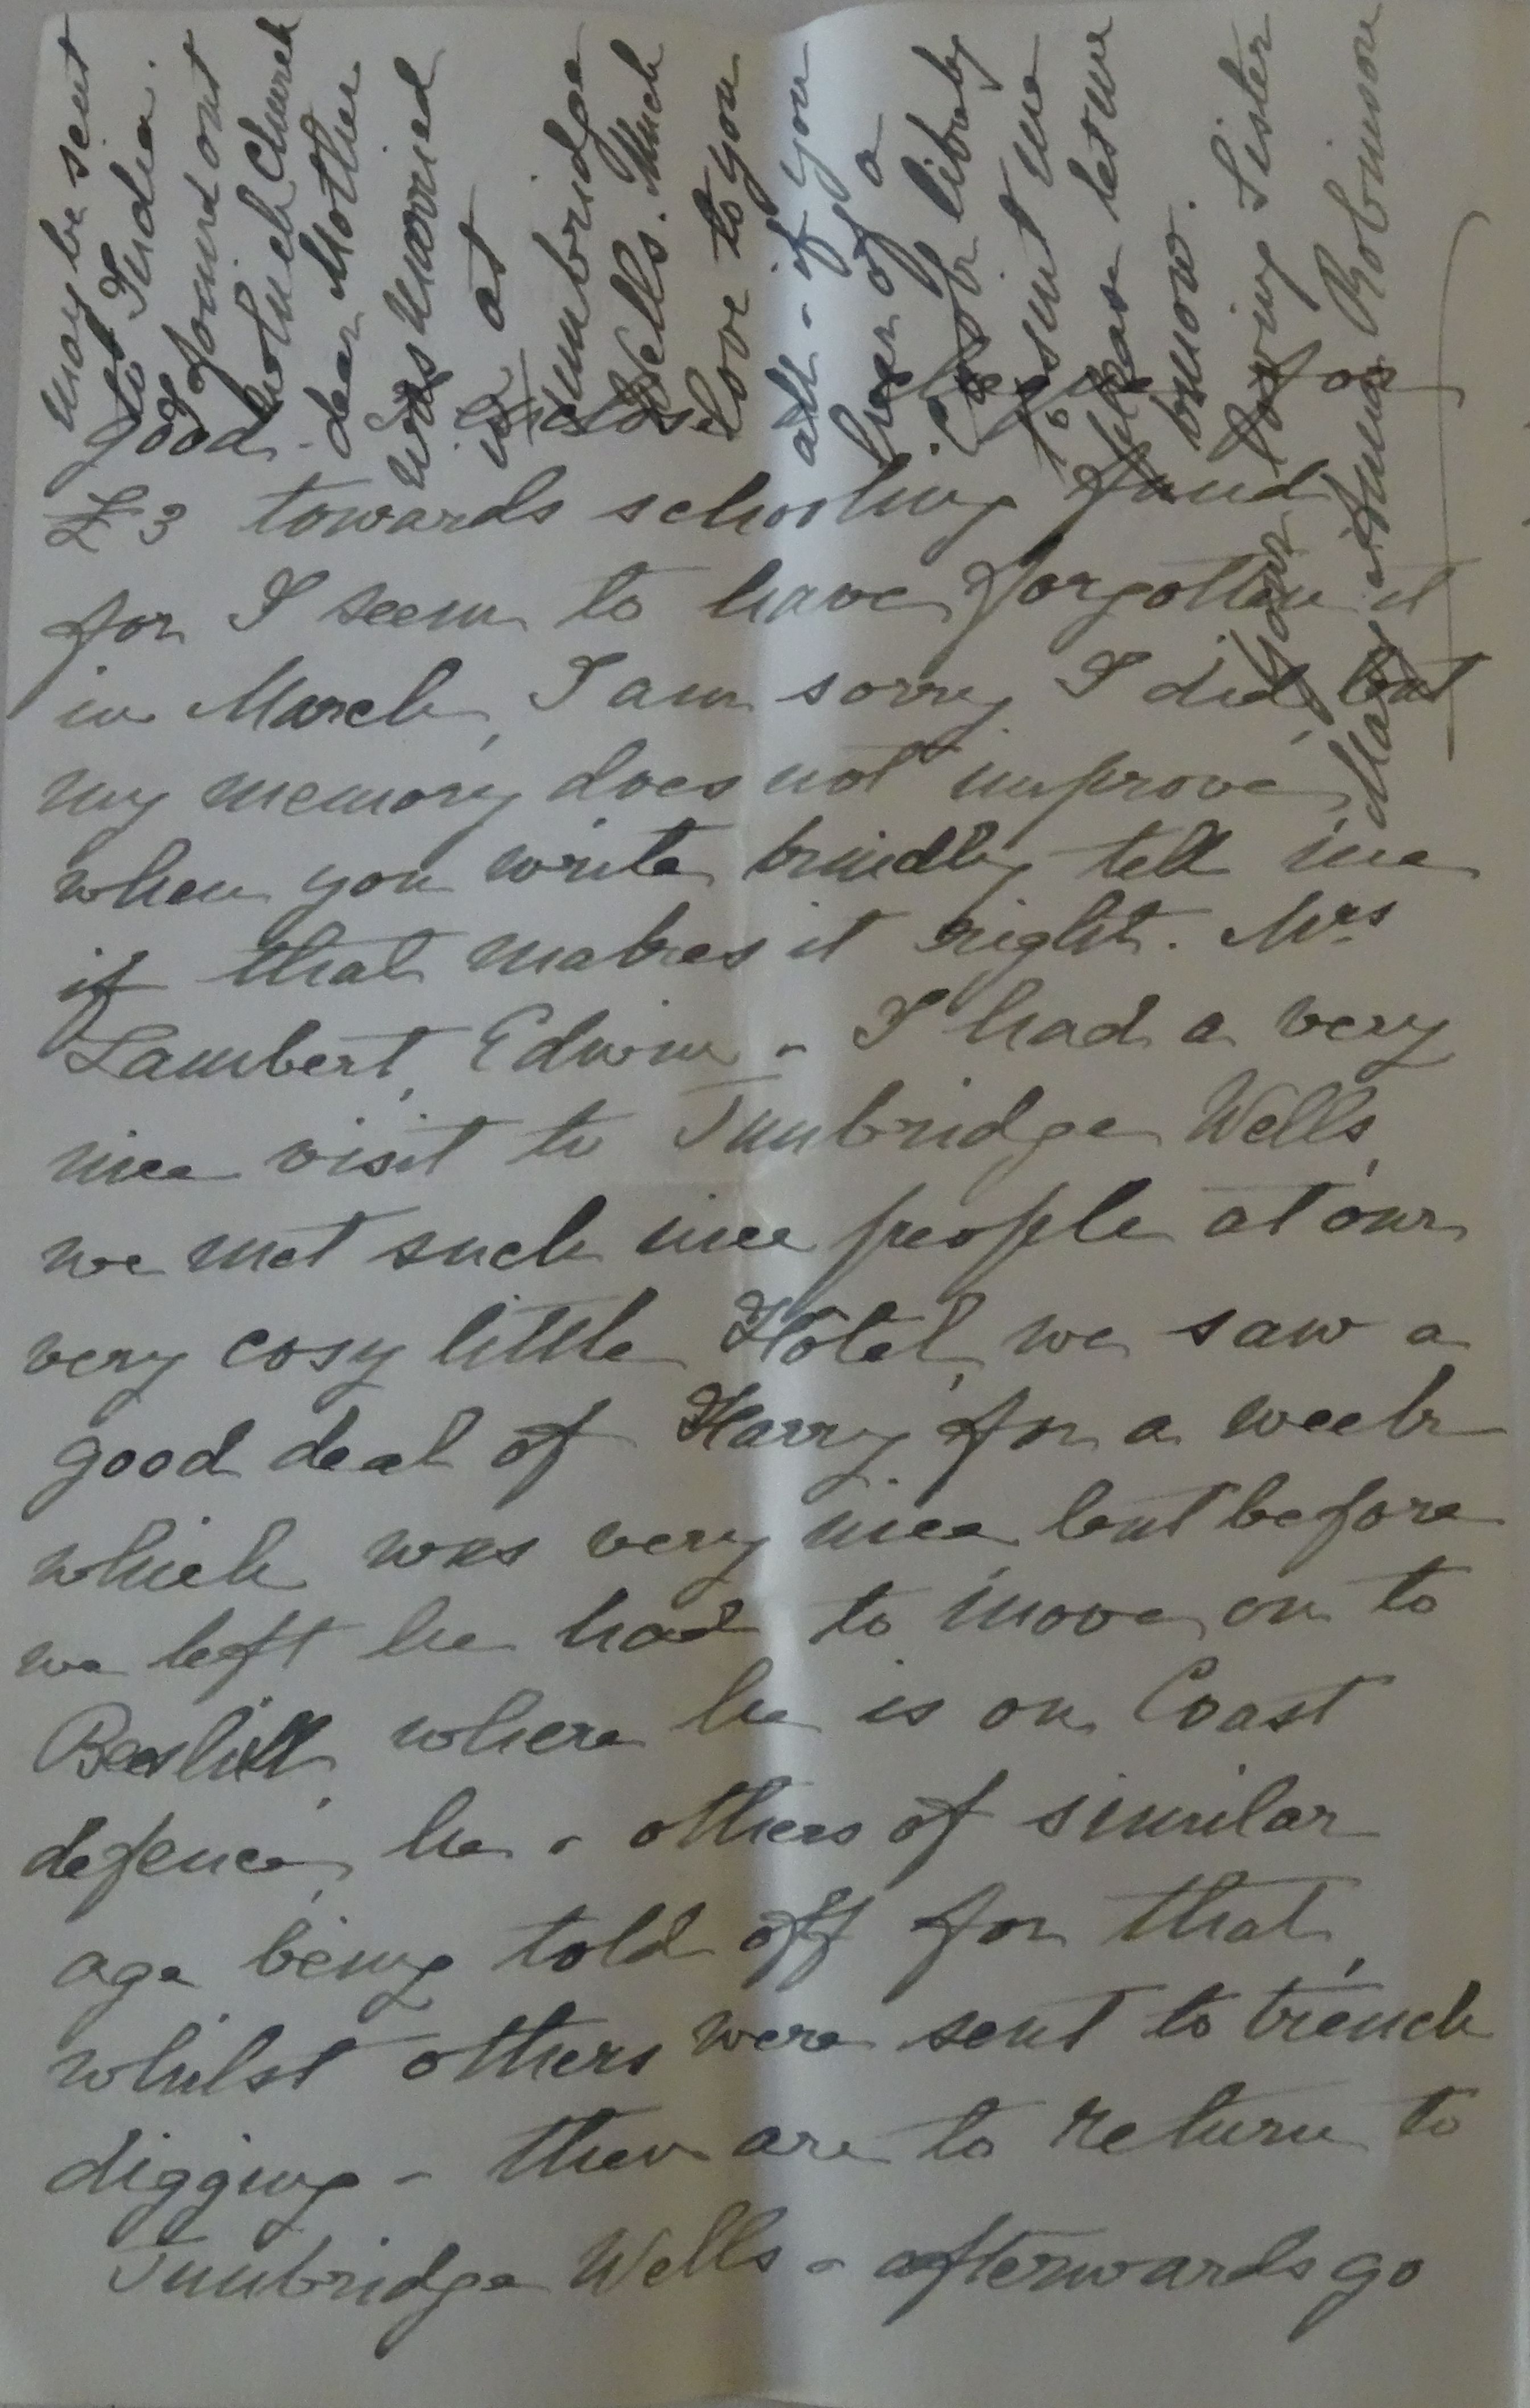 good. enclose cheque for
£3 towards schooling fund
for I seem to have forgotten it
in March, I am sorry I did, but
my memory does not improve,
when you write kindly tell me
if that makes it right. Mrs
Lambert, Edwin & I had a very
nice visit to Tunbridge Wells,
we met such nice people at our
very cosy little Hotel, we saw a
good deal of Harry for a week
which was very nice but before
we left he had to move on to
Bexhill, where he is on Coast
defence, he & others of similar
age being told off for that,
whilst others were sent to trench
digging - then are to return to
Tunbridge Wells & afterwards go
may be sent
to India.
I found out
which Church
dear Mother
was married
in at
Tunbridge
Wells. Much
love to you
all - if you
hear of a
Cook likely
to suit me
please let me
know.
Your loving Sister
Mary Anna Robinson